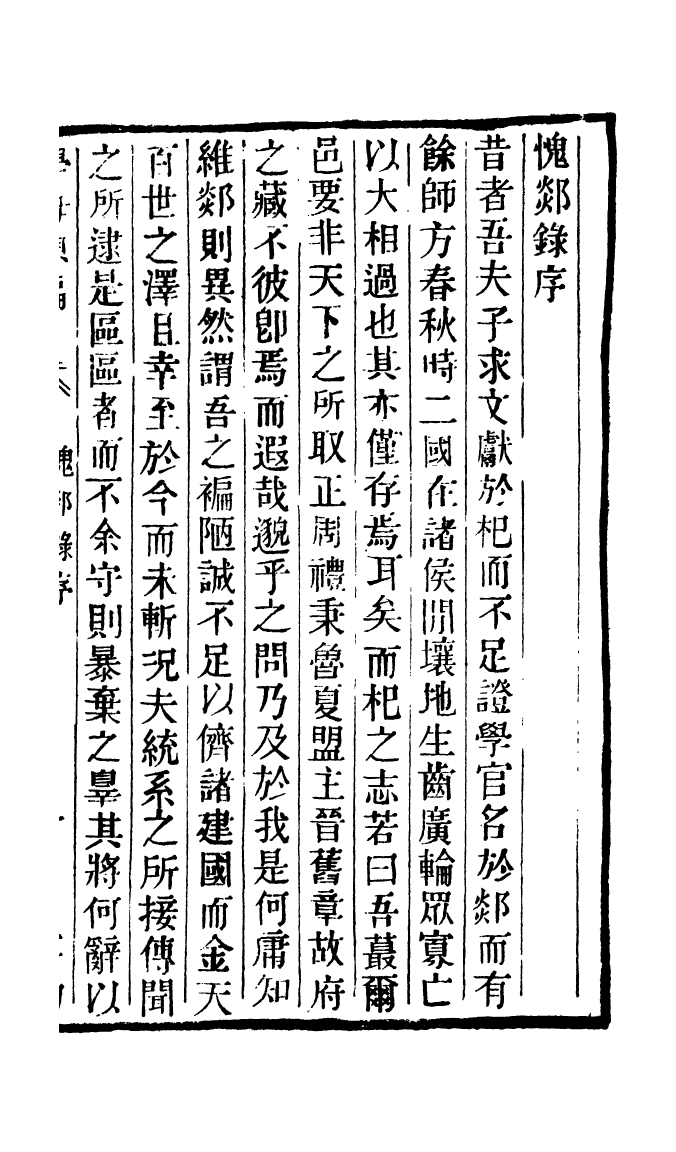 愧郯錄序
昔者吾夫子求文獻於杞而不足證學官名於郯而有
餘師方春秋時二國在諸侯閒壤地生齒廣輪眾寡亡
以大相過也其亦僅存焉耳矣而杞之志若曰吾蕞爾
邑要非天下之所取正周禮秉魯夏盟主晉舊章故府
之藏不彼卽焉而遐哉邈乎之問乃及於我是何庸知
維郯則異然謂吾之褊陋誠不足以儕諸建國而金天
百世之澤且幸至於今而未斬況夫統系之所接傳聞
之所逮是區區者而不余守則暴棄之辠其將何辭以
愧郯錄序